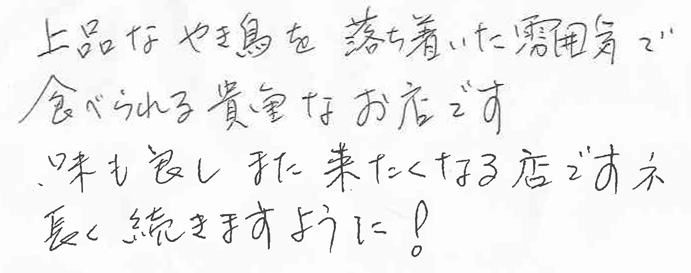 上品なやき鳥を落ち着いた雰囲気で
食べられる貴重なお店です
味も良しまた来たくなる店ですネ
長く続きますように!